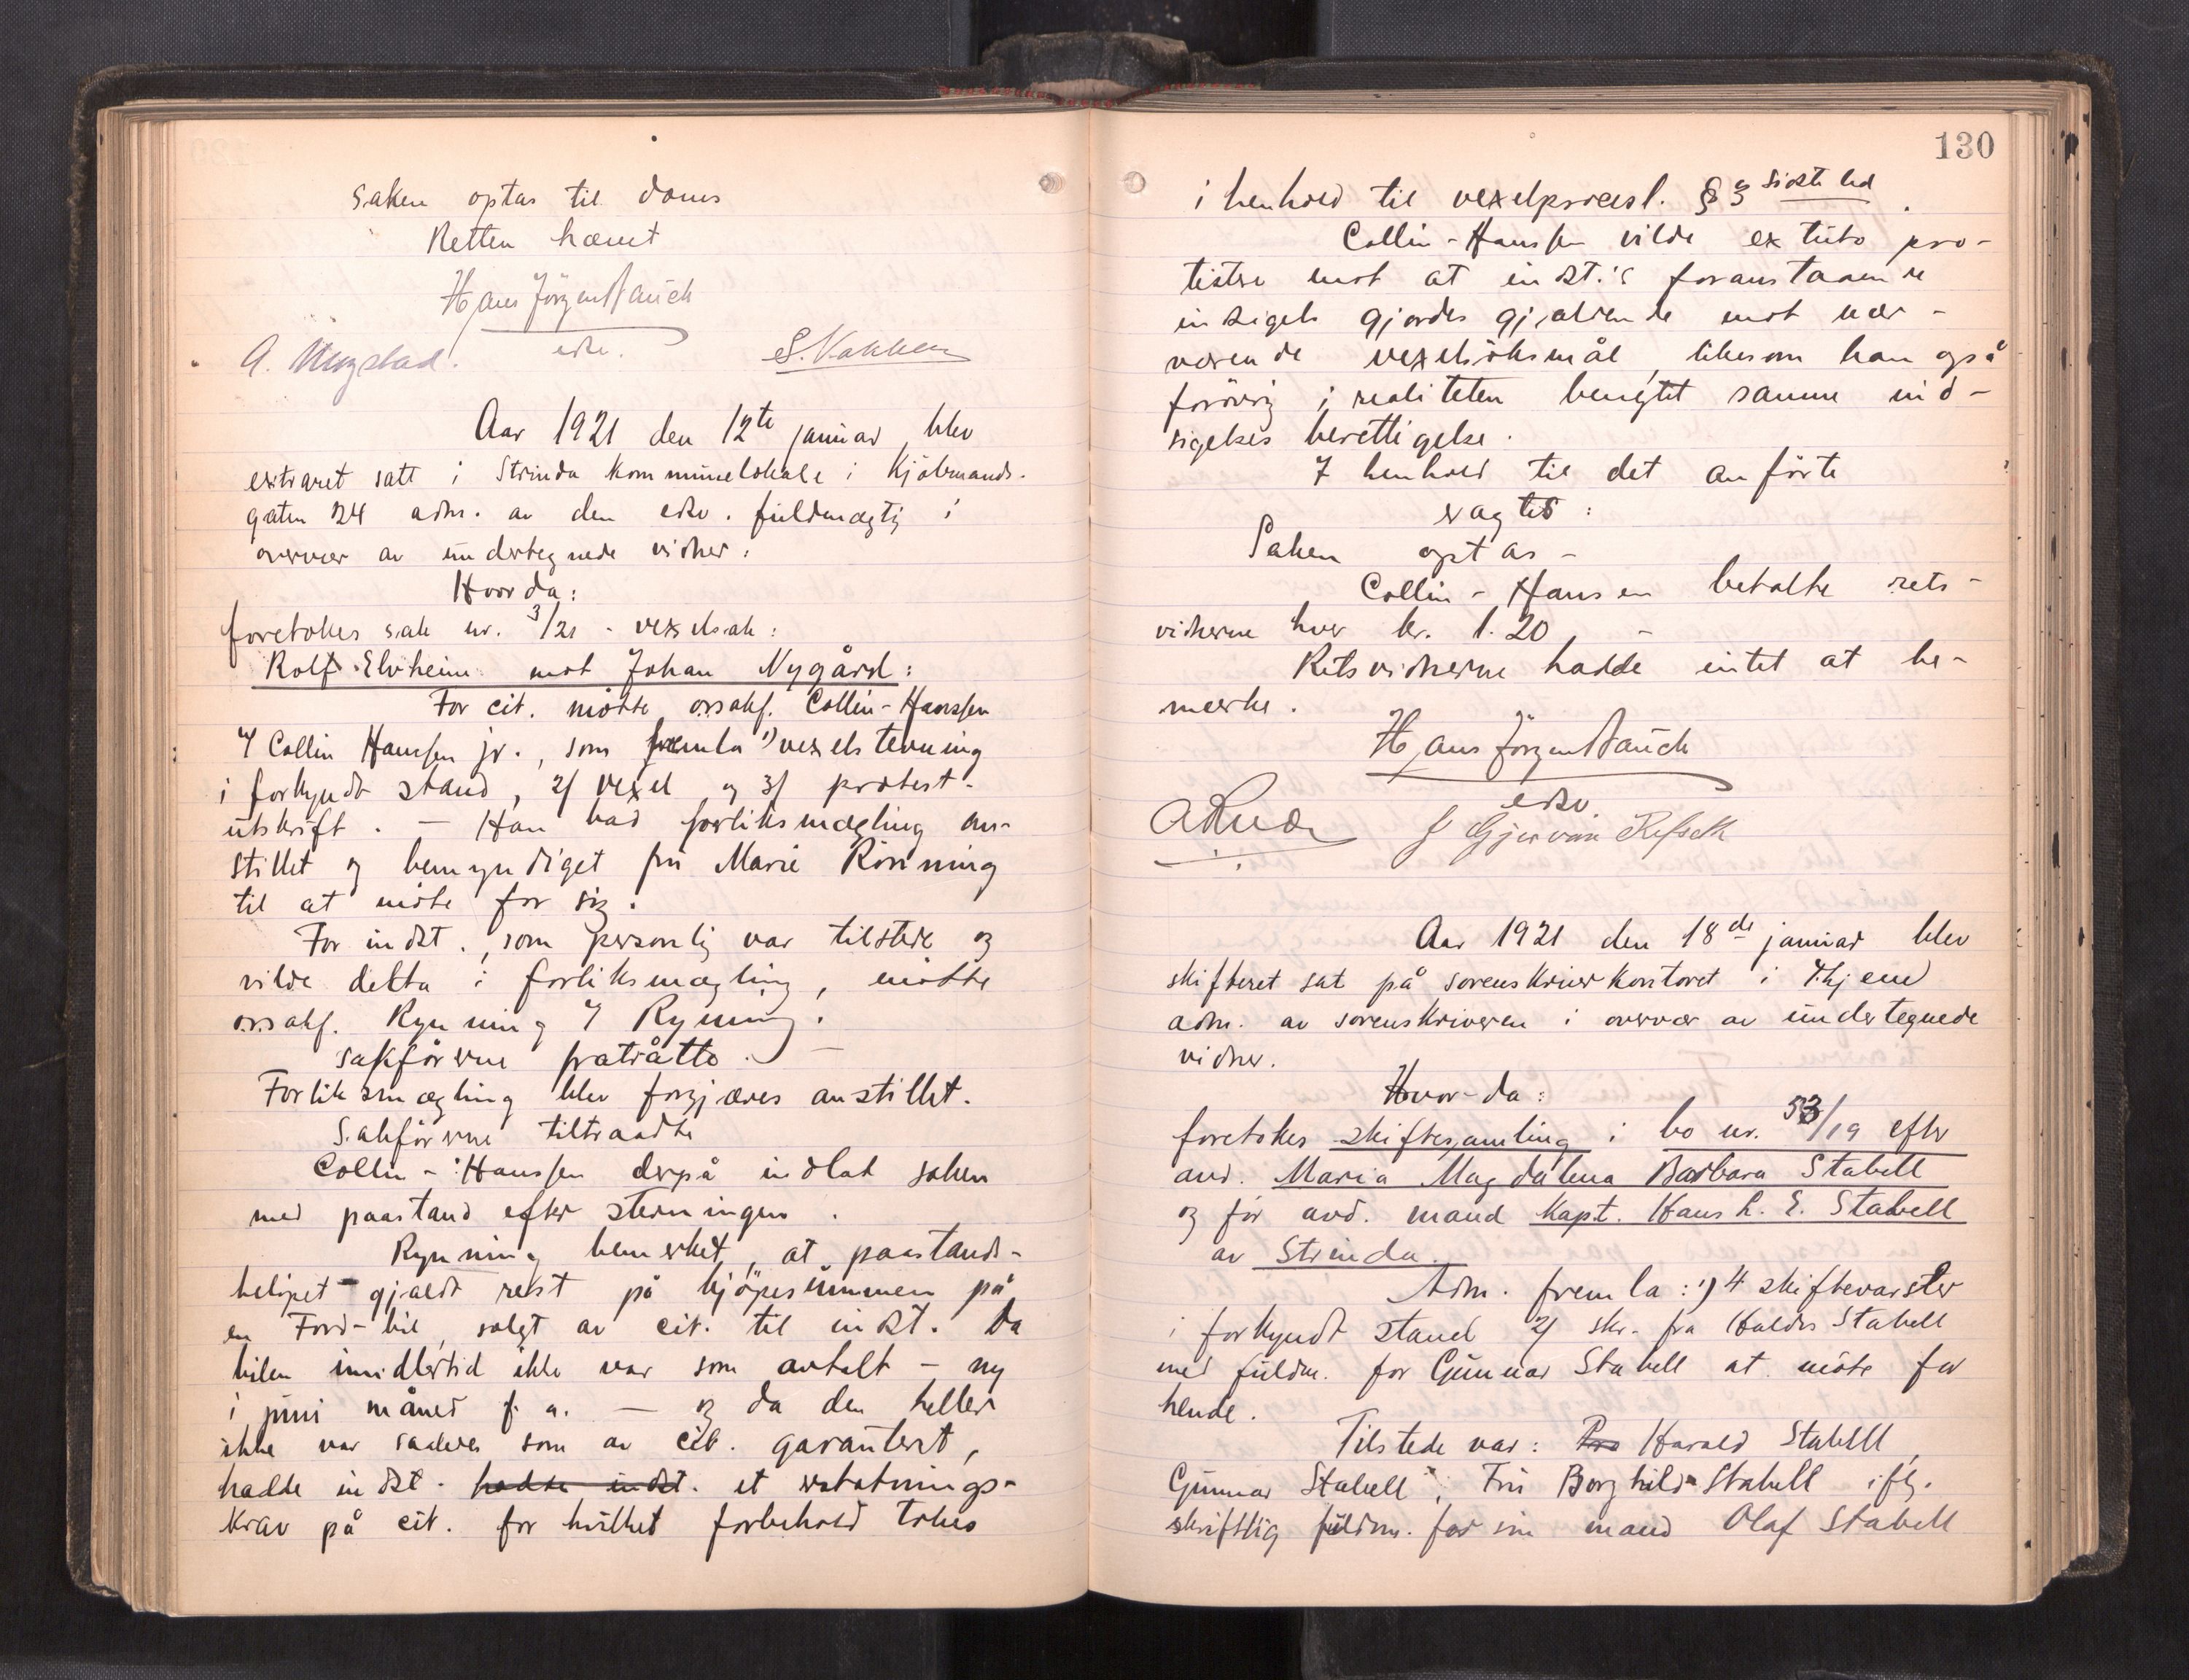 saken optas til doms
Retten hævet
Hans Jörgen Hauch
edsv.
S. Vakken
Aar 1921 den 12te januar blev
extraret satt i Strinda kommunelokale i Kjöbmands-
gaten 24 adm. av den edsv. fuldmægtig i
overvær av undertegnede vidner:
Hvorda:
foretokes sak nr. 3/21 - vexelsak:
Rolf Elvheim mot Johan Nygård:
For cit. mötte o.r.sakf. Collin-Hanssen
v/ Collin Hanssen jr., som fremla 1) vexelstevning
i forkyndt stand, 2/ vexel og 3/ protest-
utskrift. - Han bad forliksmægling an-
stillet og bemyndiget fru Marie Rönning
til at möte for sig.
For indst., som personlig var tilstede og
vilde delta i forliksmægling, mötte
o.r.sakf. Rynning v/ Rynning.
Sakförerne fratrådte. -
Forliksmægling blev forgjæves anstillet.
Sakförerne tiltraadte
Collin-Hanssen derpå indlot saken
med paastand efter stevningen.
Rynning bemerket, at paastands-
belöpet gjaldt rest på kjöpesummen på
en Ford-bil, solgt av cit. til indst. Da
bilen imidlertid ikke var som avtalt - ny
i juni måned f. a. - og da den heller
ikke var saadan som av cit. garantert,
hadde indst. hadde indst. et erstatnings-
krav på cit. for hvilket forbehold tokes
130
i henhold til vexelprocesl. § 3 sidste led.
Collin-Hanssen vilde ex tuto pro-
testere mot at indst.'s foranstaaende
indsigelse gjordes gjældende mot nær-
værende vexelsöksmål, likesom han også
forövrig i realiteten benegtet samme ind-
sigelses berettigelse.
I henhold til det anförte
eragtes:
Saken optas -
Collin-Hansen betalte rets-
vidnerne hver kr. 1.20. -
Retsvidnerne hadde intet at be-
merke.
Hans Jörgen Hauch
edsv.
Aar 1921 den 18de januar blev
skifteret sat på sorenskriverkontoret i Thjem
adm. av sorenskriveren i overvær av undertegnede
vidner.
Hvor-da:
foretokes skiftesamling i bo nr. 53/19 efter
avd. Maria Magdalena Barbara Stabell
og för avd. mand Kapt. Hans L. E. Stabell
av Strinda.
Adm. fremla: 1) 4 skiftevarsler
i forkyndt stand 2/ skr. fra Haldis Stabell
med fuldm. for Gunnar Stabell at möte for
hende.
Tilstede var: Harald Stabell,
Gunnar Stabell, Fru Borghild Stabell ifg.
skriftlig fuldm. for sin mand Olaf Stabell